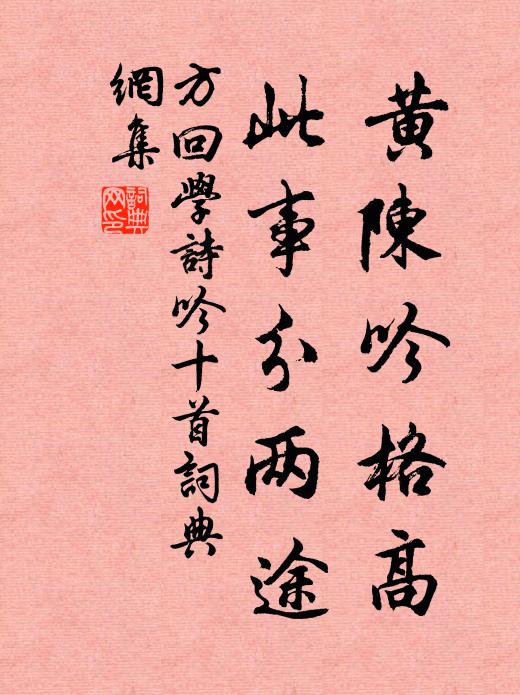 黄陳吟格高
此事分两途
方回學詩吟十首詞典
網集
詞典
网印